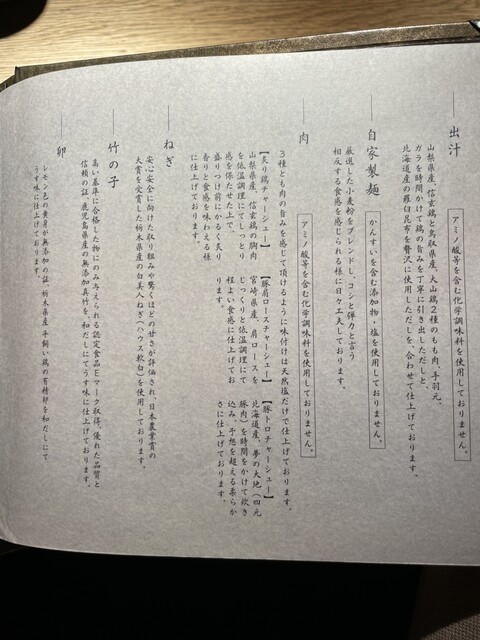 出汁
アミノ酸等を含む化学調味料を使用しておりません。
山梨県産、信玄鶏と鳥取県産、大山鶏2種のもも肉、手羽元、
ガラを時間かけて鶏の旨みを丁寧に引き出しただしと、
北海道産の羅臼昆布を贅沢に使用しただしを、合わせて仕上げております。
自家製麺
かんすいを含む添加物・塩を使用しておりません。
厳選した小麦粉をブレンドし、コシと弾力と言う
相反する食感を感じられる様に日々工夫しております。
肉
アミノ酸等を含む化学調味料を使用しておりません。
3種とも肉の旨みを感じて頂けるように味付けは天然塩だけで仕上げております。
【炙り鶏チャーシュー】
山梨県産、信玄鶏の胸肉
を低温調理にてしっとり
感を保たせた上で、
盛りつけ前にかるく炙り
香りと食感を味わえる様
に仕上げております。
【豚肩ロースチャーシュー】
宮崎県産、肩ロースを
じっくりと低温調理にて
程よい食感に仕上げてお
ります。
【豚トロチャーシュー】
北海道産、夢の大地(四元
豚肉)を時間をかけて炊き
込み、予想を超える柔らか
さに仕上げております。
ねぎ
安心安全に向けた取り組みや驚くほどの甘さが評価され、日本農業賞の
大賞を受賞した栃木県産の白美人ねぎ(ハウス軟白)を使用しております。
竹の子
高い基準に合格した物にのみ与えられる認定食品Eマーク取得、優れた品質と
信頼の証、鹿児島県産の無添加真竹を、和だしにてうす味に仕上げております。
卵
レモン色の黄身が無添加の証、栃木県産平飼い鶏の有精卵を和だしにて
うす味に仕上げております。